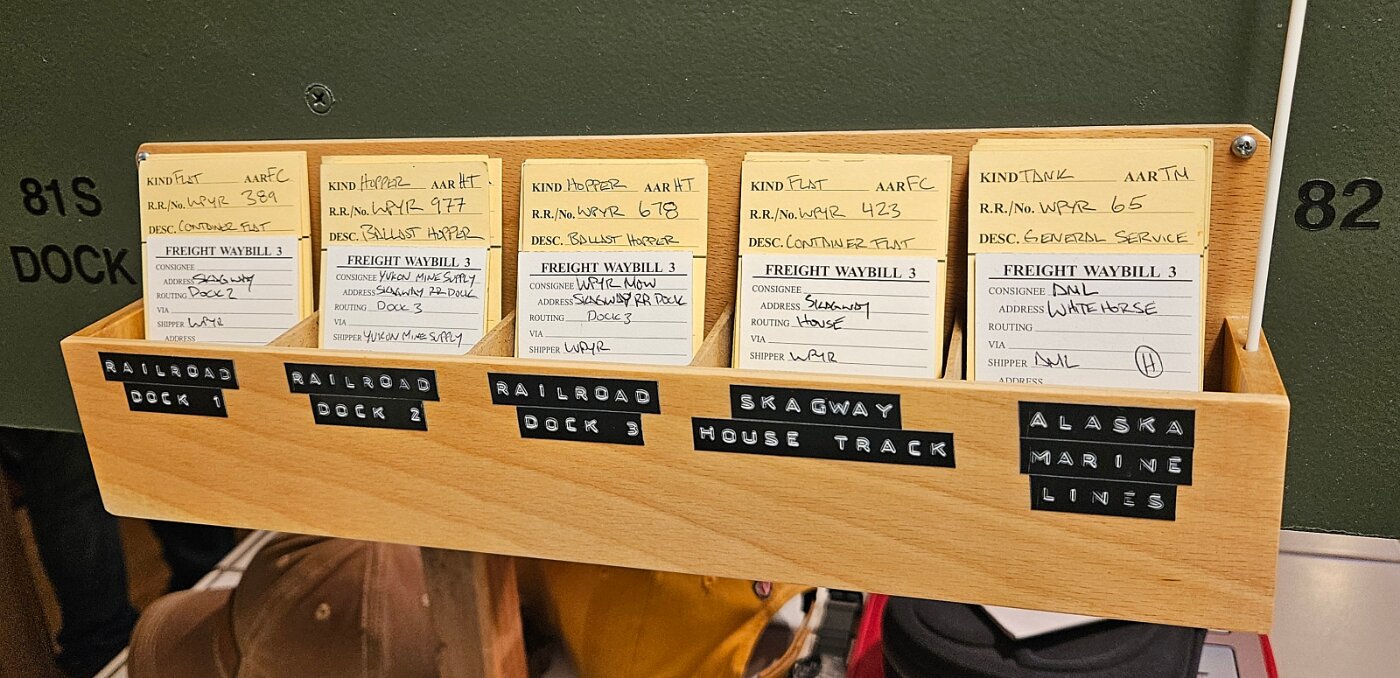 81S
DOCK
KIND FLAT AAR FC
R.R./No. WPYR 389
DESC. CONTAINER FLAT
FREIGHT WAYBILL 3
CONSIGNEE
ADDRESS SKAGWAY
ROUTING DOCK 2
VIA
SHIPPER WPYR
ADDRESS
KIND HOPPER AAR HT
R.R./No. WPYR 977
DESC. BALLAST HOPPER
FREIGHT WAYBILL 3
CONSIGNEE YUKON MINE SUPPLY
ADDRESS SKAGWAY RR DOCK
ROUTING DOCK 3
VIA
SHIPPER YUKON MINE SUPPLY
KIND HOPPER AAR HT
R.R./No. WPYR 678
DESC. BALLAST HOPPER
FREIGHT WAYBILL 3
CONSIGNEE WPYR MOW
ADDRESS SKAGWAY RR DOCK
ROUTING DOCK 3
VIA
SHIPPER WPYR
KIND FLAT AAR FC
R.R./No. WPYR 423
DESC. CONTAINER FLAT
FREIGHT WAYBILL 3
CONSIGNEE
ADDRESS SKAGWAY
ROUTING HOUSE
VIA
SHIPPER WPYR
KIND TANK AAR TM
R.R./No. WPYR 65
DESC. GENERAL SERVICE
FREIGHT WAYBILL 3
CONSIGNEE AML
ADDRESS WHITEHORSE
ROUTING
VIA
SHIPPER AML H
ADDRESS
82
RAILROAD
DOCK 1
RAILROAD
DOCK 2
RAILROAD
DOCK 3
SKAGWAY
HOUSE TRACK
ALASKA
MARINE
LINES